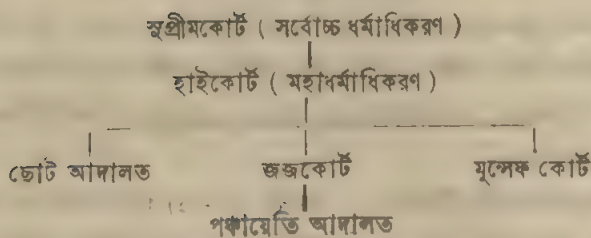 সুপ্রীমকোর্ট ( সর্বোচ্চ ধর্মাধিকরণ )
হাইকোর্ট ( মহাধর্মাধিকরণ )
ছোট আদালত জজকোর্ট মুন্সেফ কোর্ট
পঞ্চায়েতি আদালত